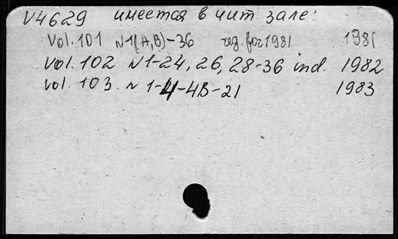 V4629 имеется в чит. зале:
Vol. 101 N 1(A,B)-36 reg. for 1981 1981
Vol. 102 N 1-24, 26, 28-36 ind. 1982
vol. 103. N 1-4-4B-21 1983